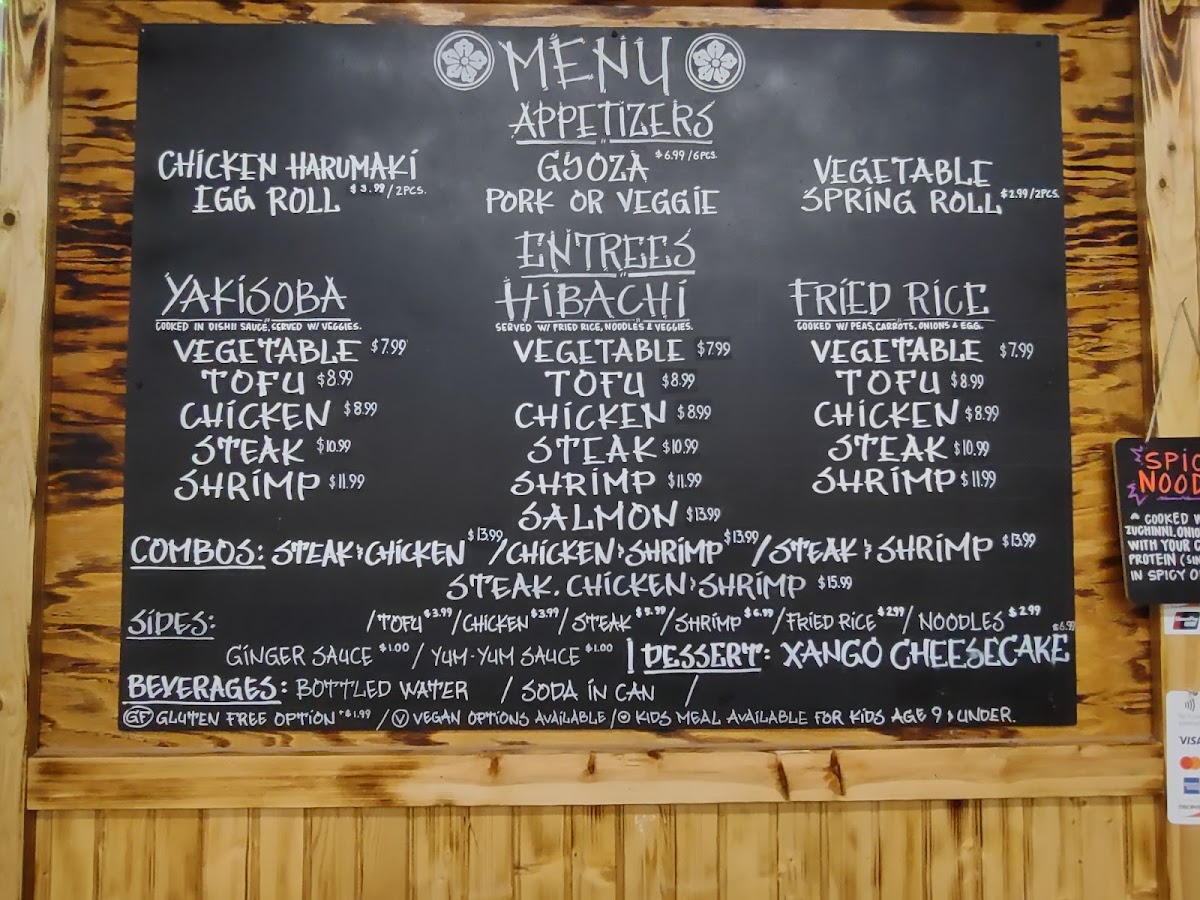 MENU
APPETIZERS
CHICKEN HARUMAKI
EGG ROLL $3.99/2PCS.
GYOZA $6.99/6PCS.
PORK OR VEGGIE
VEGETABLE
SPRING ROLL $2.99/2PCS.
ENTREES
YAKISOBA
COOKED IN DISHII SAUCE, SERVED W/ VEGGIES.
VEGETABLE $7.99
TOFU $8.99
CHICKEN $8.99
STEAK $10.99
SHRIMP $11.99
HIBACHI
SERVED W/ FRIED RICE, NOODLES & VEGGIES.
VEGETABLE $7.99
TOFU $8.99
CHICKEN $8.99
STEAK $10.99
SHRIMP $11.99
SALMON $13.99
FRIED RICE
COOKED W/ PEAS, CARROTS, ONIONS & EGG.
VEGETABLE $7.99
TOFU $8.99
CHICKEN $8.99
STEAK $10.99
SHRIMP $11.99
COMBOS: STEAK & CHICKEN $13.99 / CHICKEN & SHRIMP $13.99 / STEAK & SHRIMP $13.99
STEAK, CHICKEN & SHRIMP $15.99
SIDES: / TOFU $3.99 / CHICKEN $3.99 / STEAK $5.99 / SHRIMP $6.99 / FRIED RICE $2.99 / NOODLES $2.99
GINGER SAUCE $1.00 / YUM-YUM SAUCE $1.00 | DESSERT: XANGO CHEESECAKE $6.99
BEVERAGES: BOTTLED WATER / SODA IN CAN /
GF GLUTEN FREE OPTION +$1.99 / V VEGAN OPTIONS AVAILABLE / KIDS MEAL AVAILABLE FOR KIDS AGE 9 & UNDER.
SPIC
NOOD
COOKED W
ZUCHINNI, ONIO
WITH YOUR C
PROTEIN (SIN
IN SPICY O
VISA